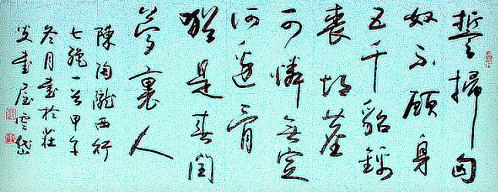 誓掃匈
奴不顧身
五千貂錦
喪胡塵
可憐無定
河邊骨
猶是春閨
夢裏人
陳陶隴西行
七絕一首甲午
冬月書於莊
書屋雲